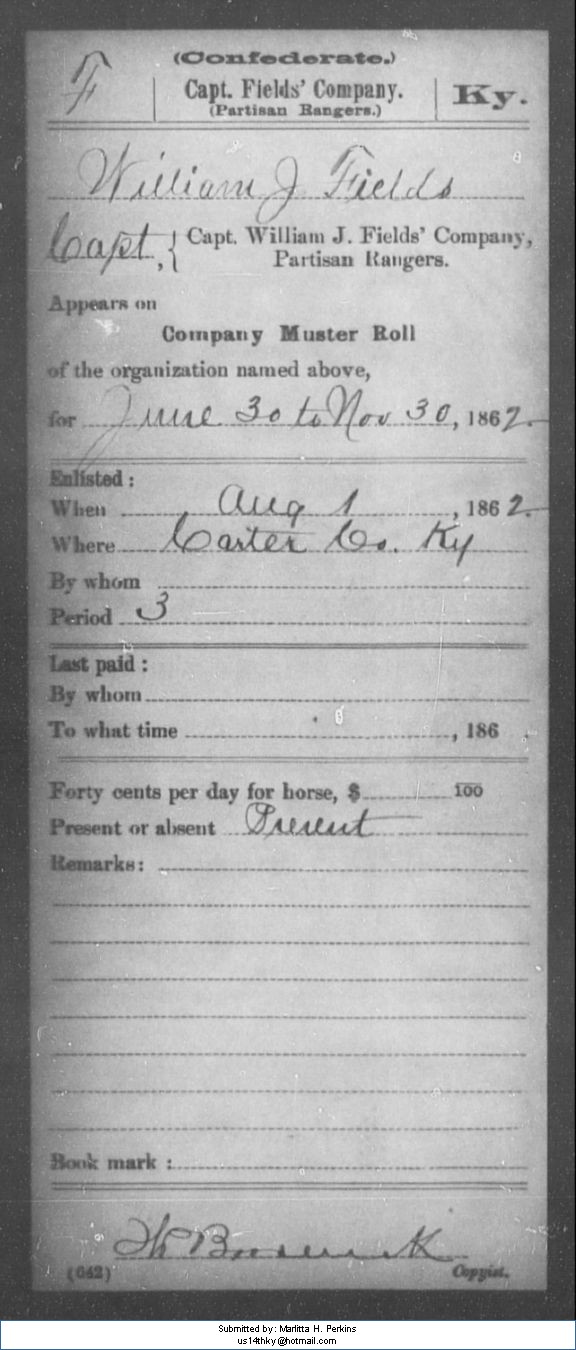 (Confederate.)
F
Capt. Fields' Company.
(Partisan Rangers.)
Ky.
William J Fields
Capt, { Capt. William J. Fields' Company,
Partisan Rangers.
Appears on
Company Muster Roll
of the organization named above,
for June 30 to Nov 30, 1862.
Enlisted:
When Aug 1, 1862.
Where Carter Co. Ky
By whom
Period 3
Last paid:
By whom
To what time , 186 .
Forty cents per day for horse, $ 100
Present or absent Present
Remarks:
Book mark:
(642)
Copyist.
Submitted by: Marlitta H. Perkins
us14thky@hotmail.com